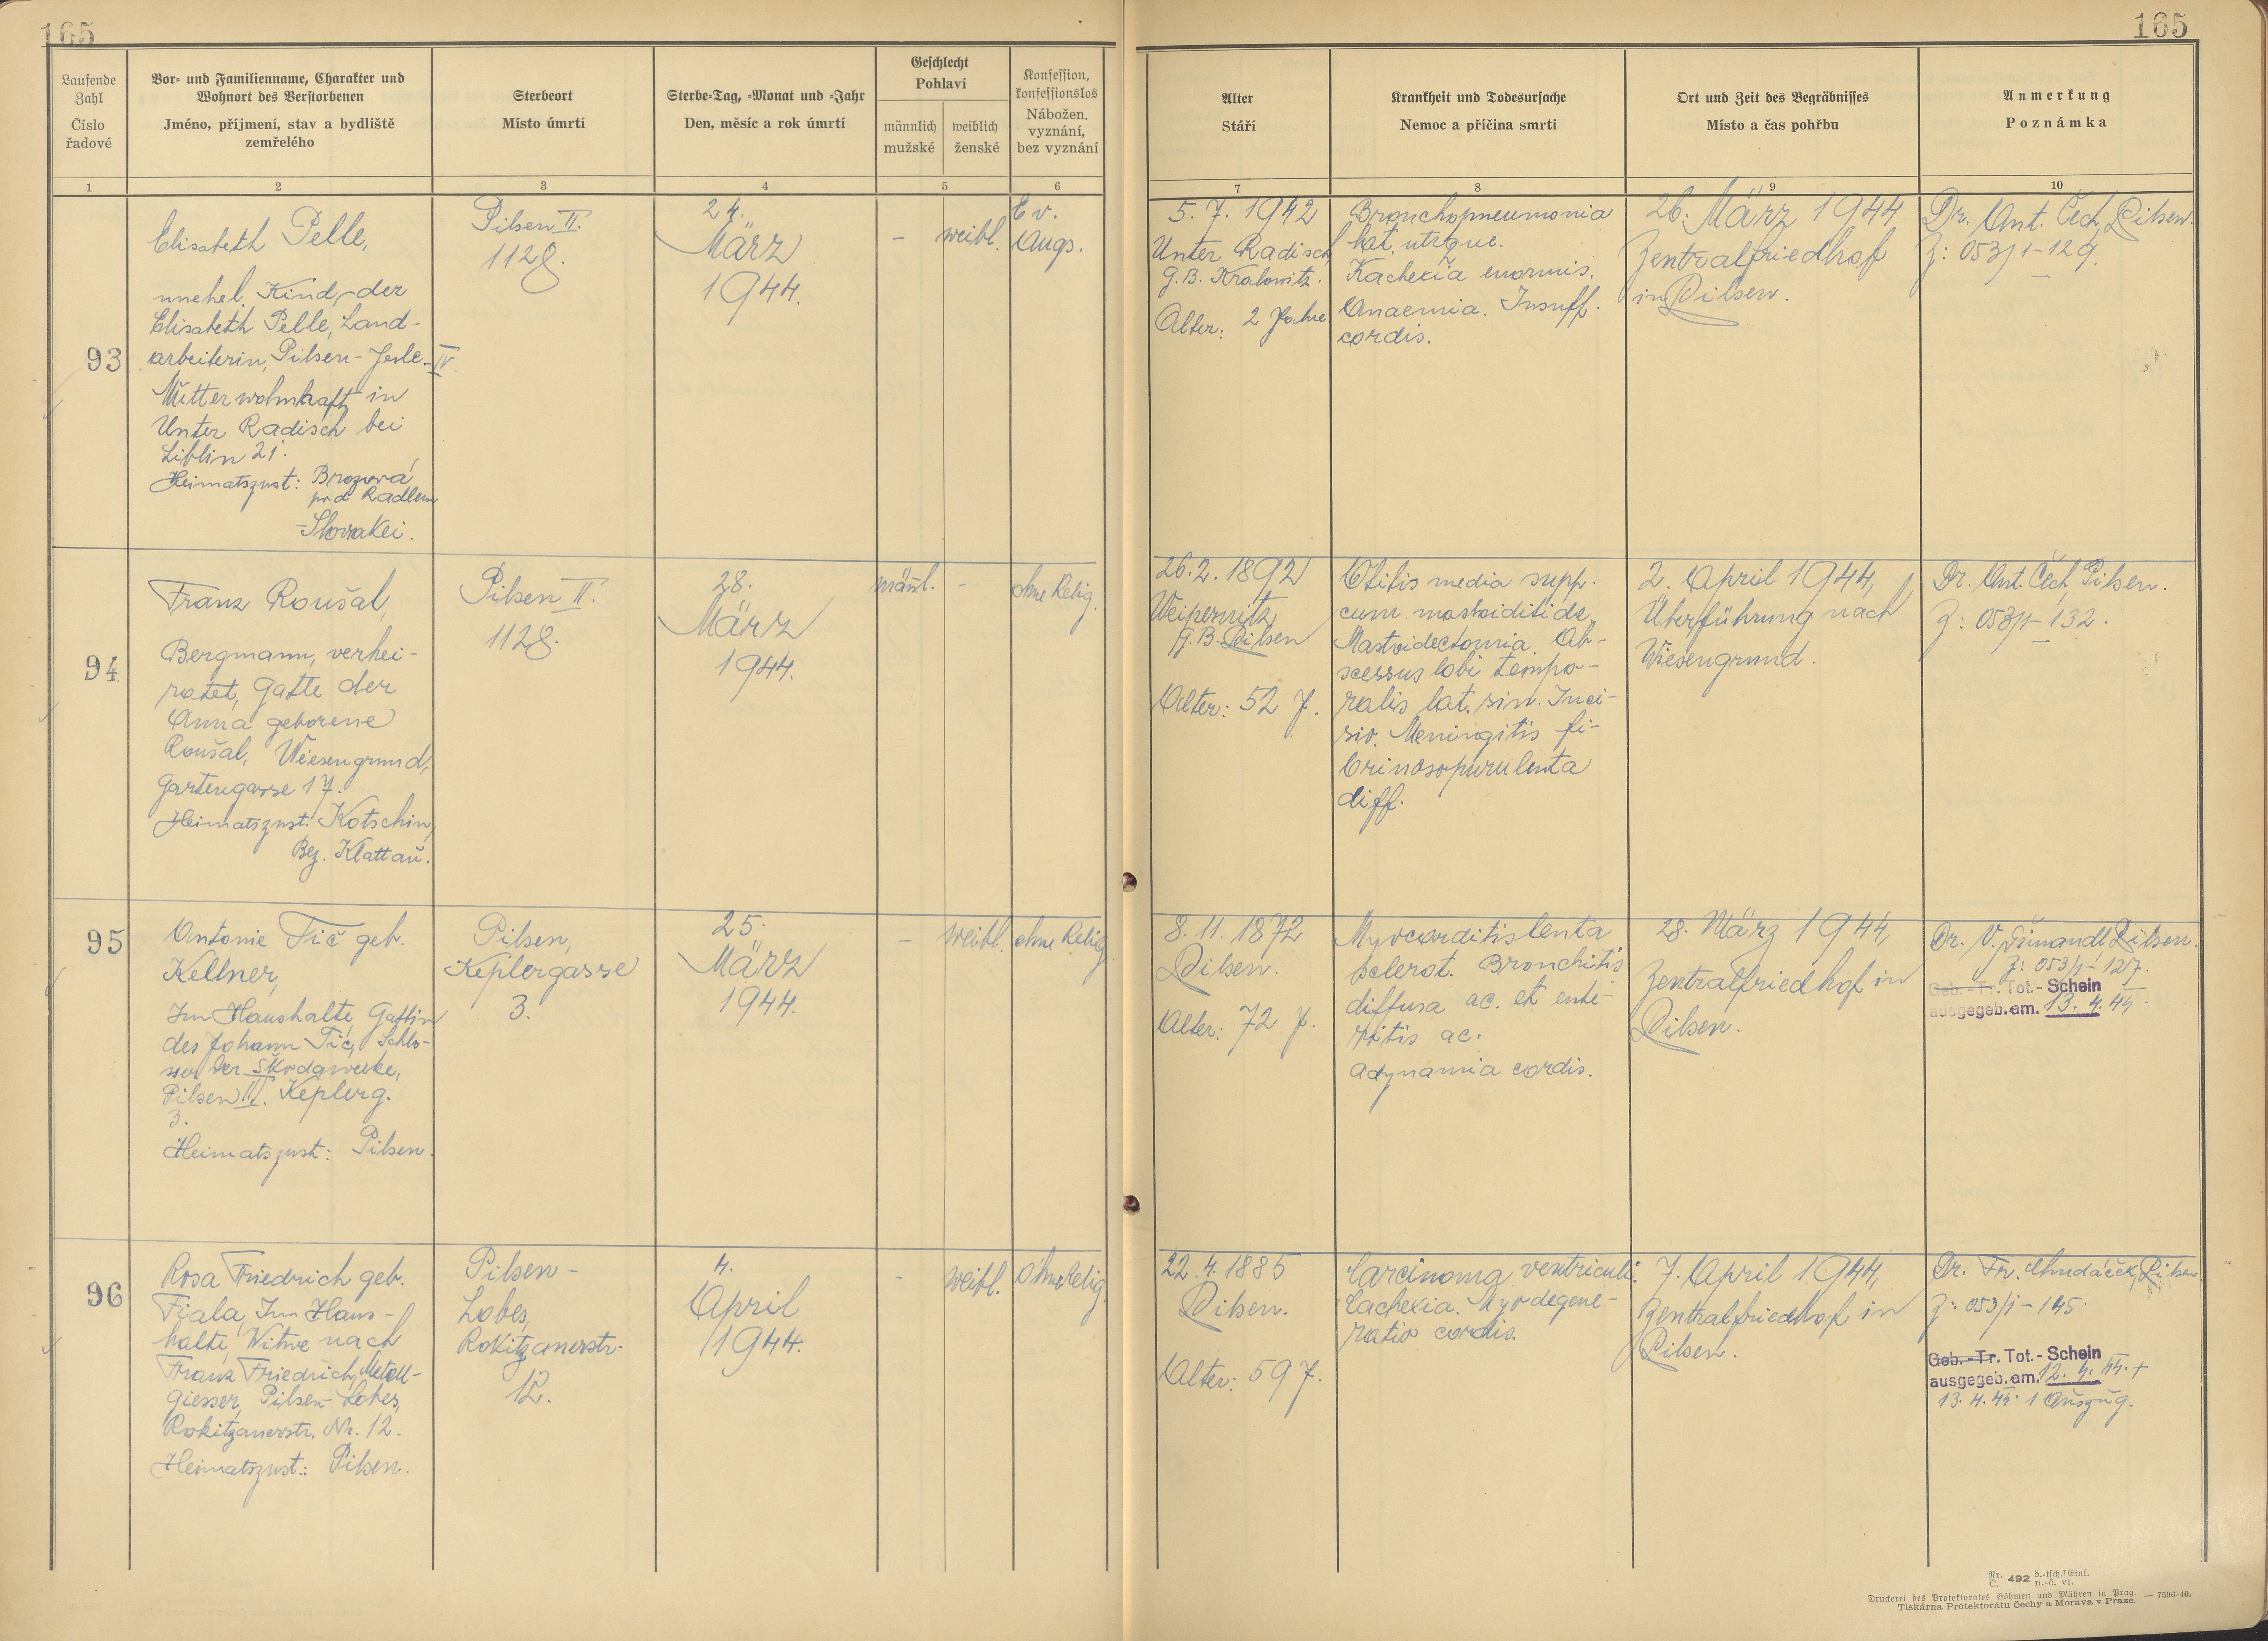 165
165
Laufende Zahl
Číslo řadové
Vor- und Familienname, Charakter und Wohnort des Verstorbenen
Jméno, příjmení, stav a bydliště zemřelého
Sterbeort
Místo úmrtí
Sterbe-Tag, -Monat und -Jahr
Den, měsíc a rok úmrtí
Geschlecht
Pohlaví
männlich
mužské
weiblich
ženské
Konfession, konfessionslos
Nábožen. vyznání, bez vyznání
Alter
Stáří
Krankheit und Todesursache
Nemoc a příčina smrti
Ort und Zeit des Begräbnisses
Místo a čas pohřbu
Anmerkung
Poznámka
1
2
3
4
5
6
7
8
9
10
93
Elisabeth Pelle,
unehel. Kind, der
Elisabeth Pelle, Land-
arbeiterin, Pilsen-Jesle-IV.
Mutter wohnhaft in
Unter Radisch bei
Liblin 21.
Heimatszust: Brozová
pod Radlem
-Slowakei.
Pilsen II.
1128.
24.
März
1944.
-
weibl.
Ev.
Augs.
5. 7. 1942
Unter Radisch
G. B. Kralowitz.
Alter: 2 Jahre
Bronchopneumonia
lat. utrque.
Kachexia enormis.
Anaemia. Insuff.
cordis.
26. März 1944
Zentralfriedhof
in Pilsen.
Dr. Ant. Čech, Pilsen.
Z: 053/1-129.
94
Franz Roušal,
Bergmann, verhei-
ratet, Gatte der
Anna geborene
Roušal, Wiesengrund,
Gartengasse 17.
Heimatszust: Kotschin,
Bez. Klattau.
Pilsen II.
1128.
28.
März
1944.
männl.
-
ohne Relig.
26. 2. 1892
Weipernitz,
G. B. Pilsen
Alter: 52 J.
Otitis media supp.
cum. mastoiditide,
Mastoidectomia. Ab-
scessus lobi tempo-
ralis lat. sin. Inci-
sio. Meningitis fi-
brinosopurulenta
diff.
2. April 1944,
Überführung nach
Wiesengrund.
Dr. Ant. Čech, Pilsen.
Z: 053/1-132.
95
Antonie Tič geb.
Kellner,
Im Haushalte, Gattin
des Johann Tič, Schlo-
sser der Škodawerke,
Pilsen III. Keplerg.
3.
Heimatszust: Pilsen.
Pilsen,
Keplergasse
3.
25.
März
1944.
-
weibl.
ohne Relig.
8. 11. 1872
Pilsen.
Alter: 72 J.
Myocarditis lenta
sclerot. Bronchitis
diffusa ac. et ente-
ritis ac.
Adynamia cordis.
28. März 1944,
Zentralfriedhof in
Pilsen.
Dr. V. Pilsen.
Z: 053/1-127.
Geb.-Tr. Tot.-Schein
ausgegeb. am. 13. 4. 44.
96
Rosa Friedrich geb.
Fiala, Im Haus-
halte, Witwe nach
Franz Friedrich, Metall-
giesser, Pilsen-Lobes,
Rokitzanerstr. Nr. 12.
Heimatszust.: Pilsen.
Pilsen-
Lobes,
Rokitzanerstr.
12.
4.
April
1944.
-
weibl.
ohne Relig.
22. 4. 1885
Pilsen.
Alter: 59 J.
Carcinoma ventriculi.
Cachexia. Myodegene-
ratio cordis.
7. April 1944,
Zentralfriedhof in
Pilsen.
Dr. Fr. Chudáček, Pilsen
Z: 053/1-145.
Geb.-Tr. Tot.-Schein
ausgegeb. am. 12. 4. 44. +
13. 4. 44. 1 Auszug.
Nr. Č. 492 d.-tsch. Einl. n.-č. vl.
Druckerei des Protektorates Böhmen und Mähren in Prag. — 7596-40.
Tiskárna Protektorátu Čechy a Morava v Praze.